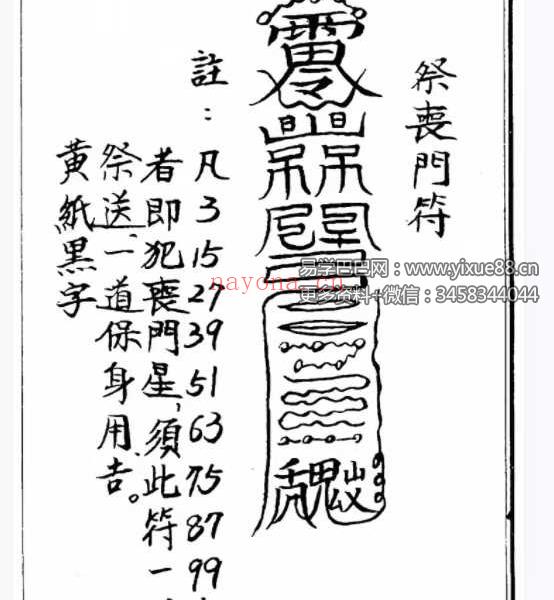 祭喪門符
雷令
註：
凡3 15 27 39 51 63 75 87 99
者即犯喪門星，須此符一
祭送一道保身用，吉。
黃紙黑字
nayona.cn
易学巴巴网：www.yixue88.cn
更多资料+微信：3458344044